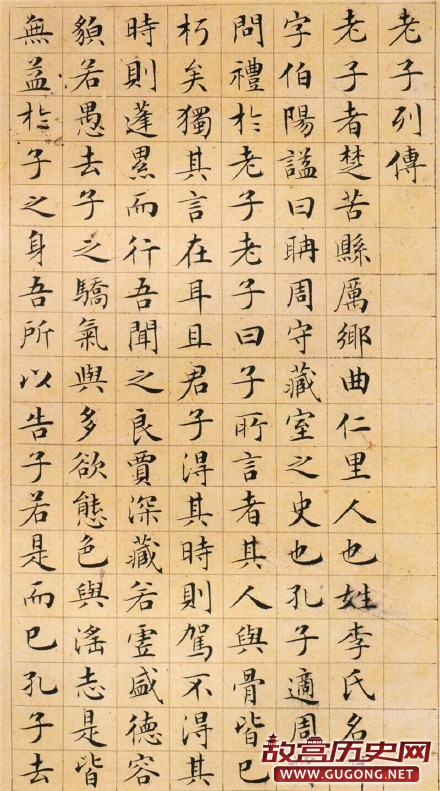 老子列傳
老子者楚苦縣厲鄉曲仁里人也姓李氏名
字伯陽謚曰聃周守藏室之史也孔子適周
問禮於老子老子曰子所言者其人與骨皆已
朽矣獨其言在耳且君子得其時則駕不得其
時則蓬累而行吾聞之良賈深藏若虛盛德容
貌若愚去子之驕氣與多欲態色與淫志是皆
無益於子之身吾所以告子若是而已孔子去
故宫历史网
www.GUGONG.NET